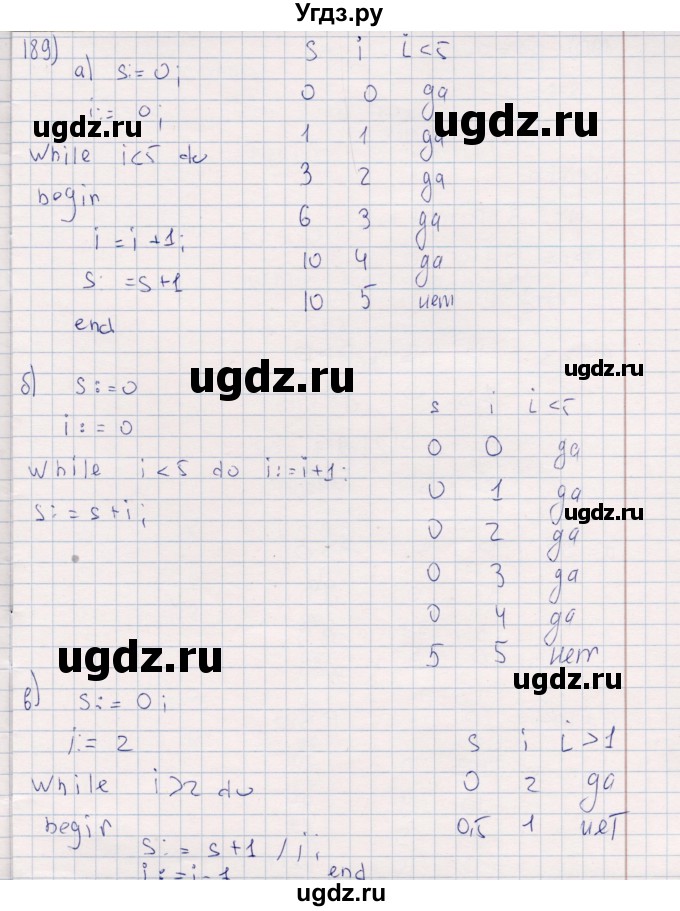 Угдз.ру
189)
а) s:= 0;
i:= 0;
while i<5 do
begin
i = i +1;
s: =s+1
end
S i i<5
0 0 да
1 1 да
3 2 да
6 3 да
10 4 да
10 5 нет
ugdz.ru
ugdz.ru
ugdz.ru
ugdz.ru
ugdz.ru
б) s:=0
i:=0
while i<5 do i:=i+1:
s:=s+i;
s i i<5
0 0 да
0 1 да
0 2 да
0 3 да
0 4 да
5 5 нет
ugdz.ru
ugdz.ru
ugdz.ru
в) s:= 0;
i:= 2
while i>2 do
begin
s:= s+1 /i;
i:=i-1 end
s i i>1
0 2 да
0,5 1 нет
ugdz.ru
ugdz.ru
ugdz.ru